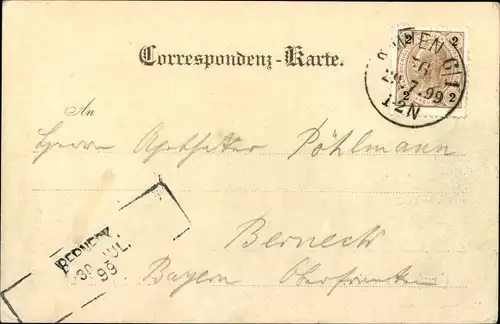 Correspondenz-Karte.
2 2
2 2
WIEN 6/1
7.99
1-2N
An
Herrn Apotheker Pöhlmann
Berneck
Bayern Oberfranken
BERNECK.
30 JUL.
99